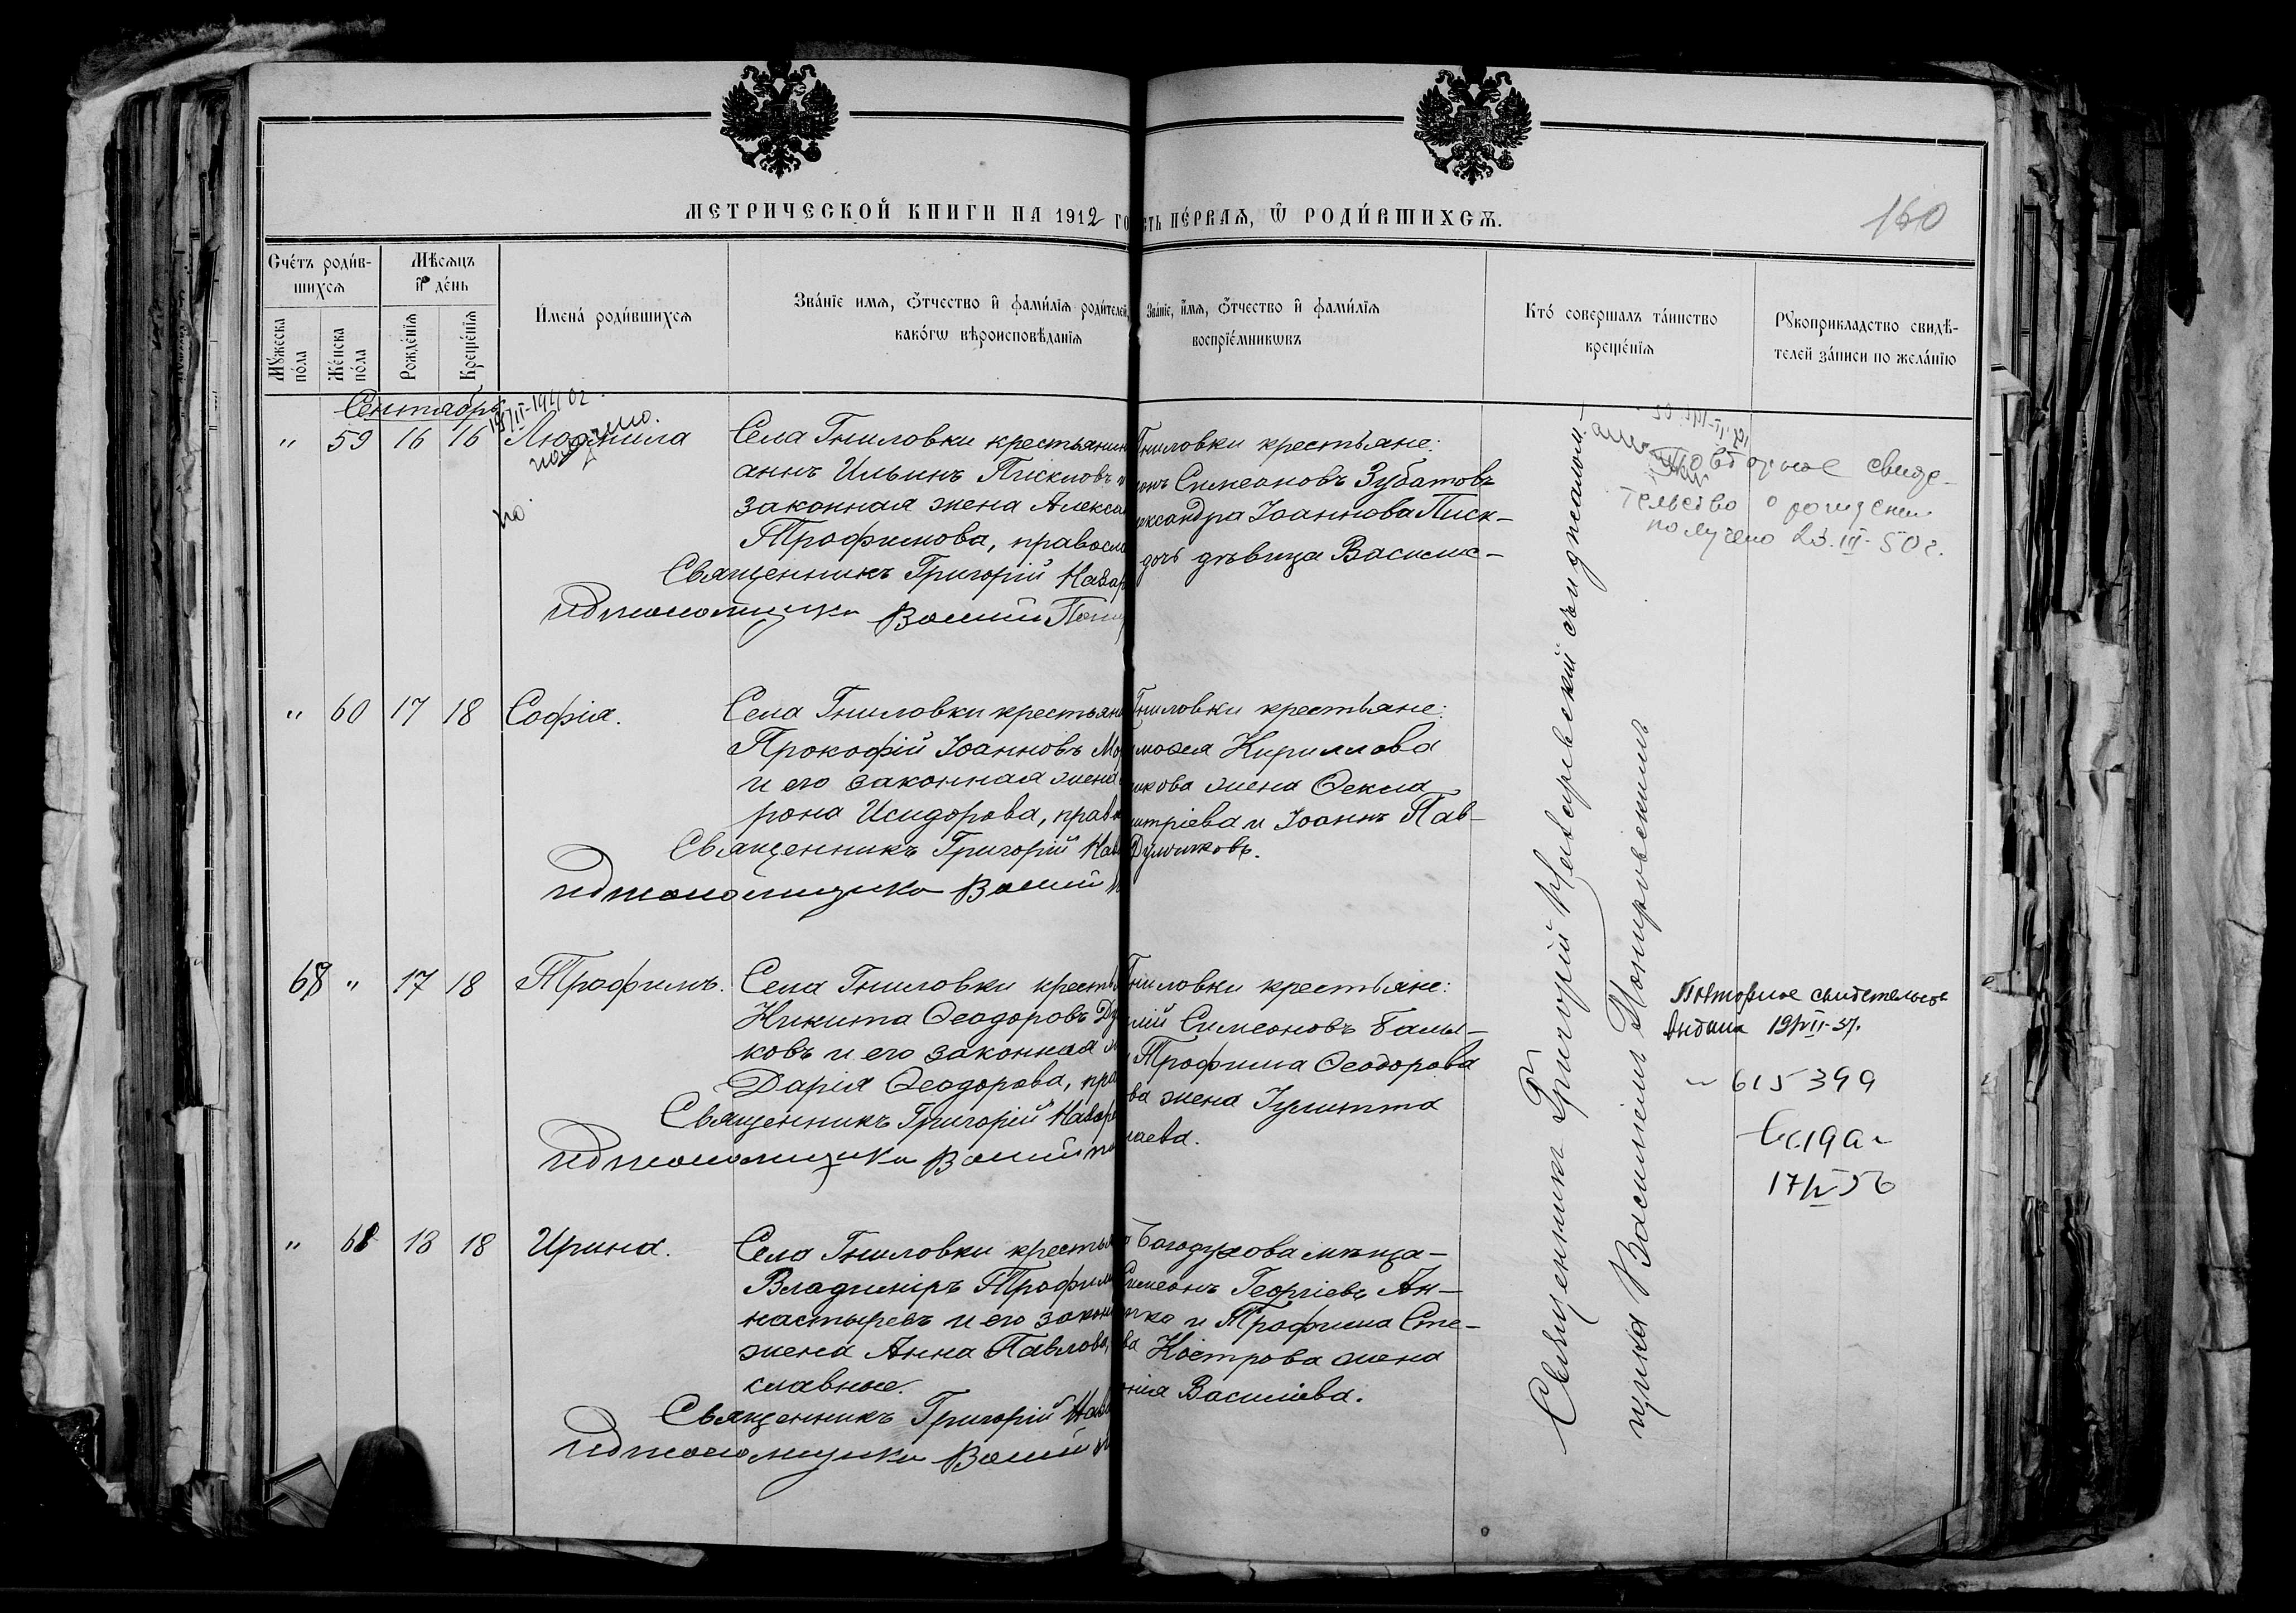 МЕТРИЧЕСКОЙ КНИГИ НА 1912 го
сть пе́рваѧ, ѡ҆ роди́вшихсѧ.
160
Сче́тъ роди́в-
шихсѧ
Мѣ́сѧцъ
и҆ де́нь
Мꙋ́жеска по́ла
Же́нска по́ла
Рожде́нїѧ
Креще́нїѧ
И҆мена́ роди́вшихсѧ
Зва́нїе имѧ, ѻ҆́тчество и҆ фами́лїѧ роди́телей,
како́гѡ вѣроисповѣ́данїѧ
Зва́нїе, и҆́мѧ, ѻ҆́тчество и҆ фами́лїѧ
воспрїе́мникѡвъ
Кто́ соверша́лъ та́инство
креще́нїѧ
Рꙋкоприкладство свидѣ́-
телей за́писи по жела́нїю
Сентябрь
" 59 16 16 Людмила
по
Села Гниловки крестьянин
аннъ Ильинъ Пискловъ и
законная жена Алекса
Трофимова, правосла
Священникъ Григорій Навар
Псаломщикъ Василій Пони
Гниловки крестьяне:
онъ Симеоновъ Зубатовъ
ександра Іоаннова Писк-
дочь дѣвица Василис-
повторное свиде-
тельство о рождении
получено 23.III-50 г.
" 60 17 18 Софія.
Села Гниловки крестьяни
Прокофій Іоанновъ Мо
и его законная жена
рона Исидорова, прав
Священникъ Григорій Нав
Псаломщикъ Василій
Гниловки крестьяне:
имофея Кириллова
икова жена Ѳекла
митріева и Іоаннъ Пав-
68 " 17 18 Трофимъ.
Села Гниловки кресть
Никита Ѳеодоровъ Ду
ковъ и его законная ж
Дарія Ѳеодорова, пра
Священникъ Григорій Наваре
Псаломщикъ Василій По
Гниловки крестьяне:
лій Симеоновъ Балы-
и Трофима Ѳеодорова
ва жена Іулитта
лаева.
Повторное свидетельство
выдано 19/VII-37.
615399
17/IV 56
" 68 18 18 Ирина.
Села Гниловки крестья
Владиміръ Трофим
настыревъ и его закон
жена Анна Павлова,
славные.
Священникъ Григорій Нав
Псаломщикъ Василій
а Богодухова мѣща-
Симеонъ Георгіевъ Ан-
чка и Трофима Сте-
ва Кострова жена
нія Василіева.
Священникъ Григорій Наваревскій съ псалом-
щикомъ Василіемъ Понировскимъ